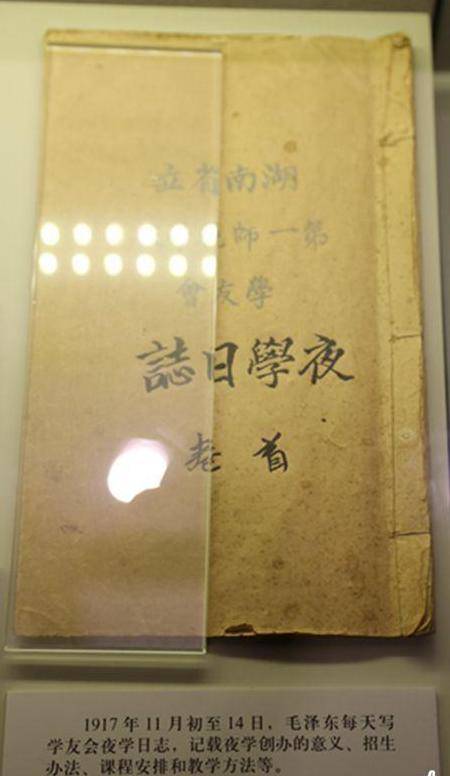 湖南省立
第一師
學友會
夜學日誌
首卷
1917年11月初至14日，毛泽东每天写
学友会夜学日志，记载夜学创办的意义、招生
办法、课程安排和教学方法等。